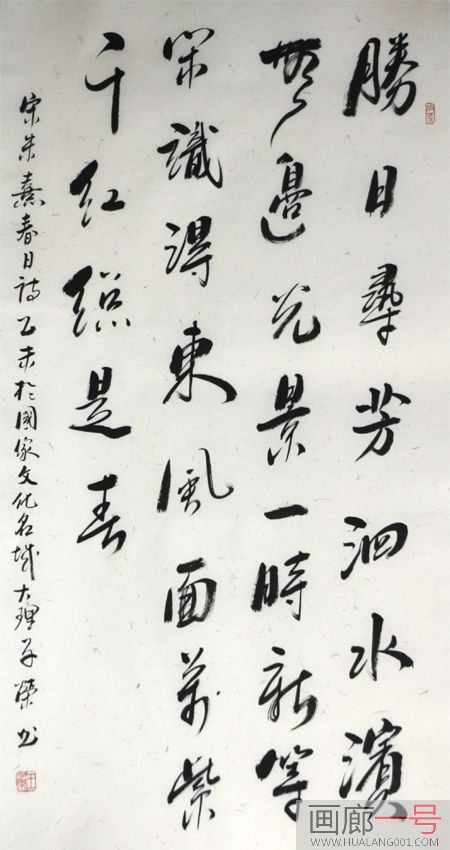 勝日尋芳泗水濱
無邊光景一時新等
閑識得東風面萬紫
千紅總是春
宋朱熹春日詩乙未於國家文化名城大理子榮书
画廊一号
WWW.HUALANG001.COM